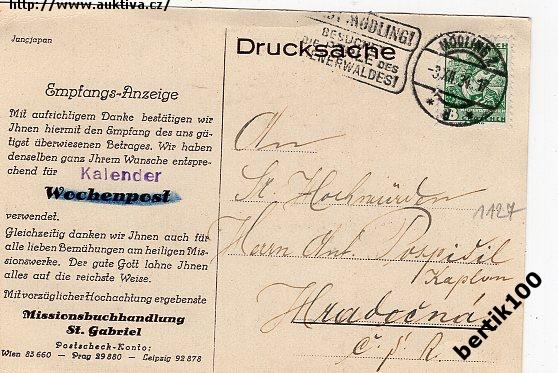 http://www.auktiva.cz/
Jungjapan
Drucksache
MÖDLING!
BESUCHET
DES
WIENERWALDES!
MÖDLING
Empfangs-Anzeige
Mit aufrichtigem Danke bestätigen wir
Ihnen hiermit den Empfang des uns gü-
tigst überwiesenen Betrages. Wir haben
denselben ganz Ihrem Wunsche entspre-
chend für Kalender
Wochenpost
verwendet.
Gleichzeitig danken wir Ihnen auch für
alle lieben Bemühungen am heiligen Mis-
sionswerke. Der gute Gott lohne Ihnen
alles auf die reichste Weise.
Mit vorzüglicher Hochachtung ergebenste
Missionsbuchhandlung
St. Gabriel
Postscheck-Konto:
Wien 83 660 — Prag 29 880 — Leipzig 92 878
An
Sr. Hochwürden
1127
Herrn Ant. Pospíšil
Kaplan
Hradočná
Č. S. R.
bertik100